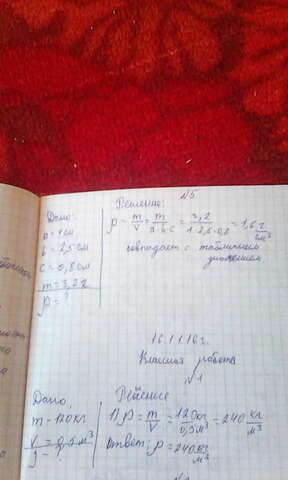 №5
Дано:
Решение:
a = 1 см
b = 2,5 см
c = 0,8 см
m = 3,2 г
ρ = ?
ρ = m/V = m/a·b·c = 3,2/1·2,5·0,8 = 1,6 г/см³
совпадает с табличным
значением.
16.11.16г.
Классная работа
№1
Дано
Решение
m - 120 кг
V = 0,5 м³
ρ - ?
1) ρ = m/V = 120кг/0,5м³ = 240 кг/м³
ответ: ρ = 240 кг/м³